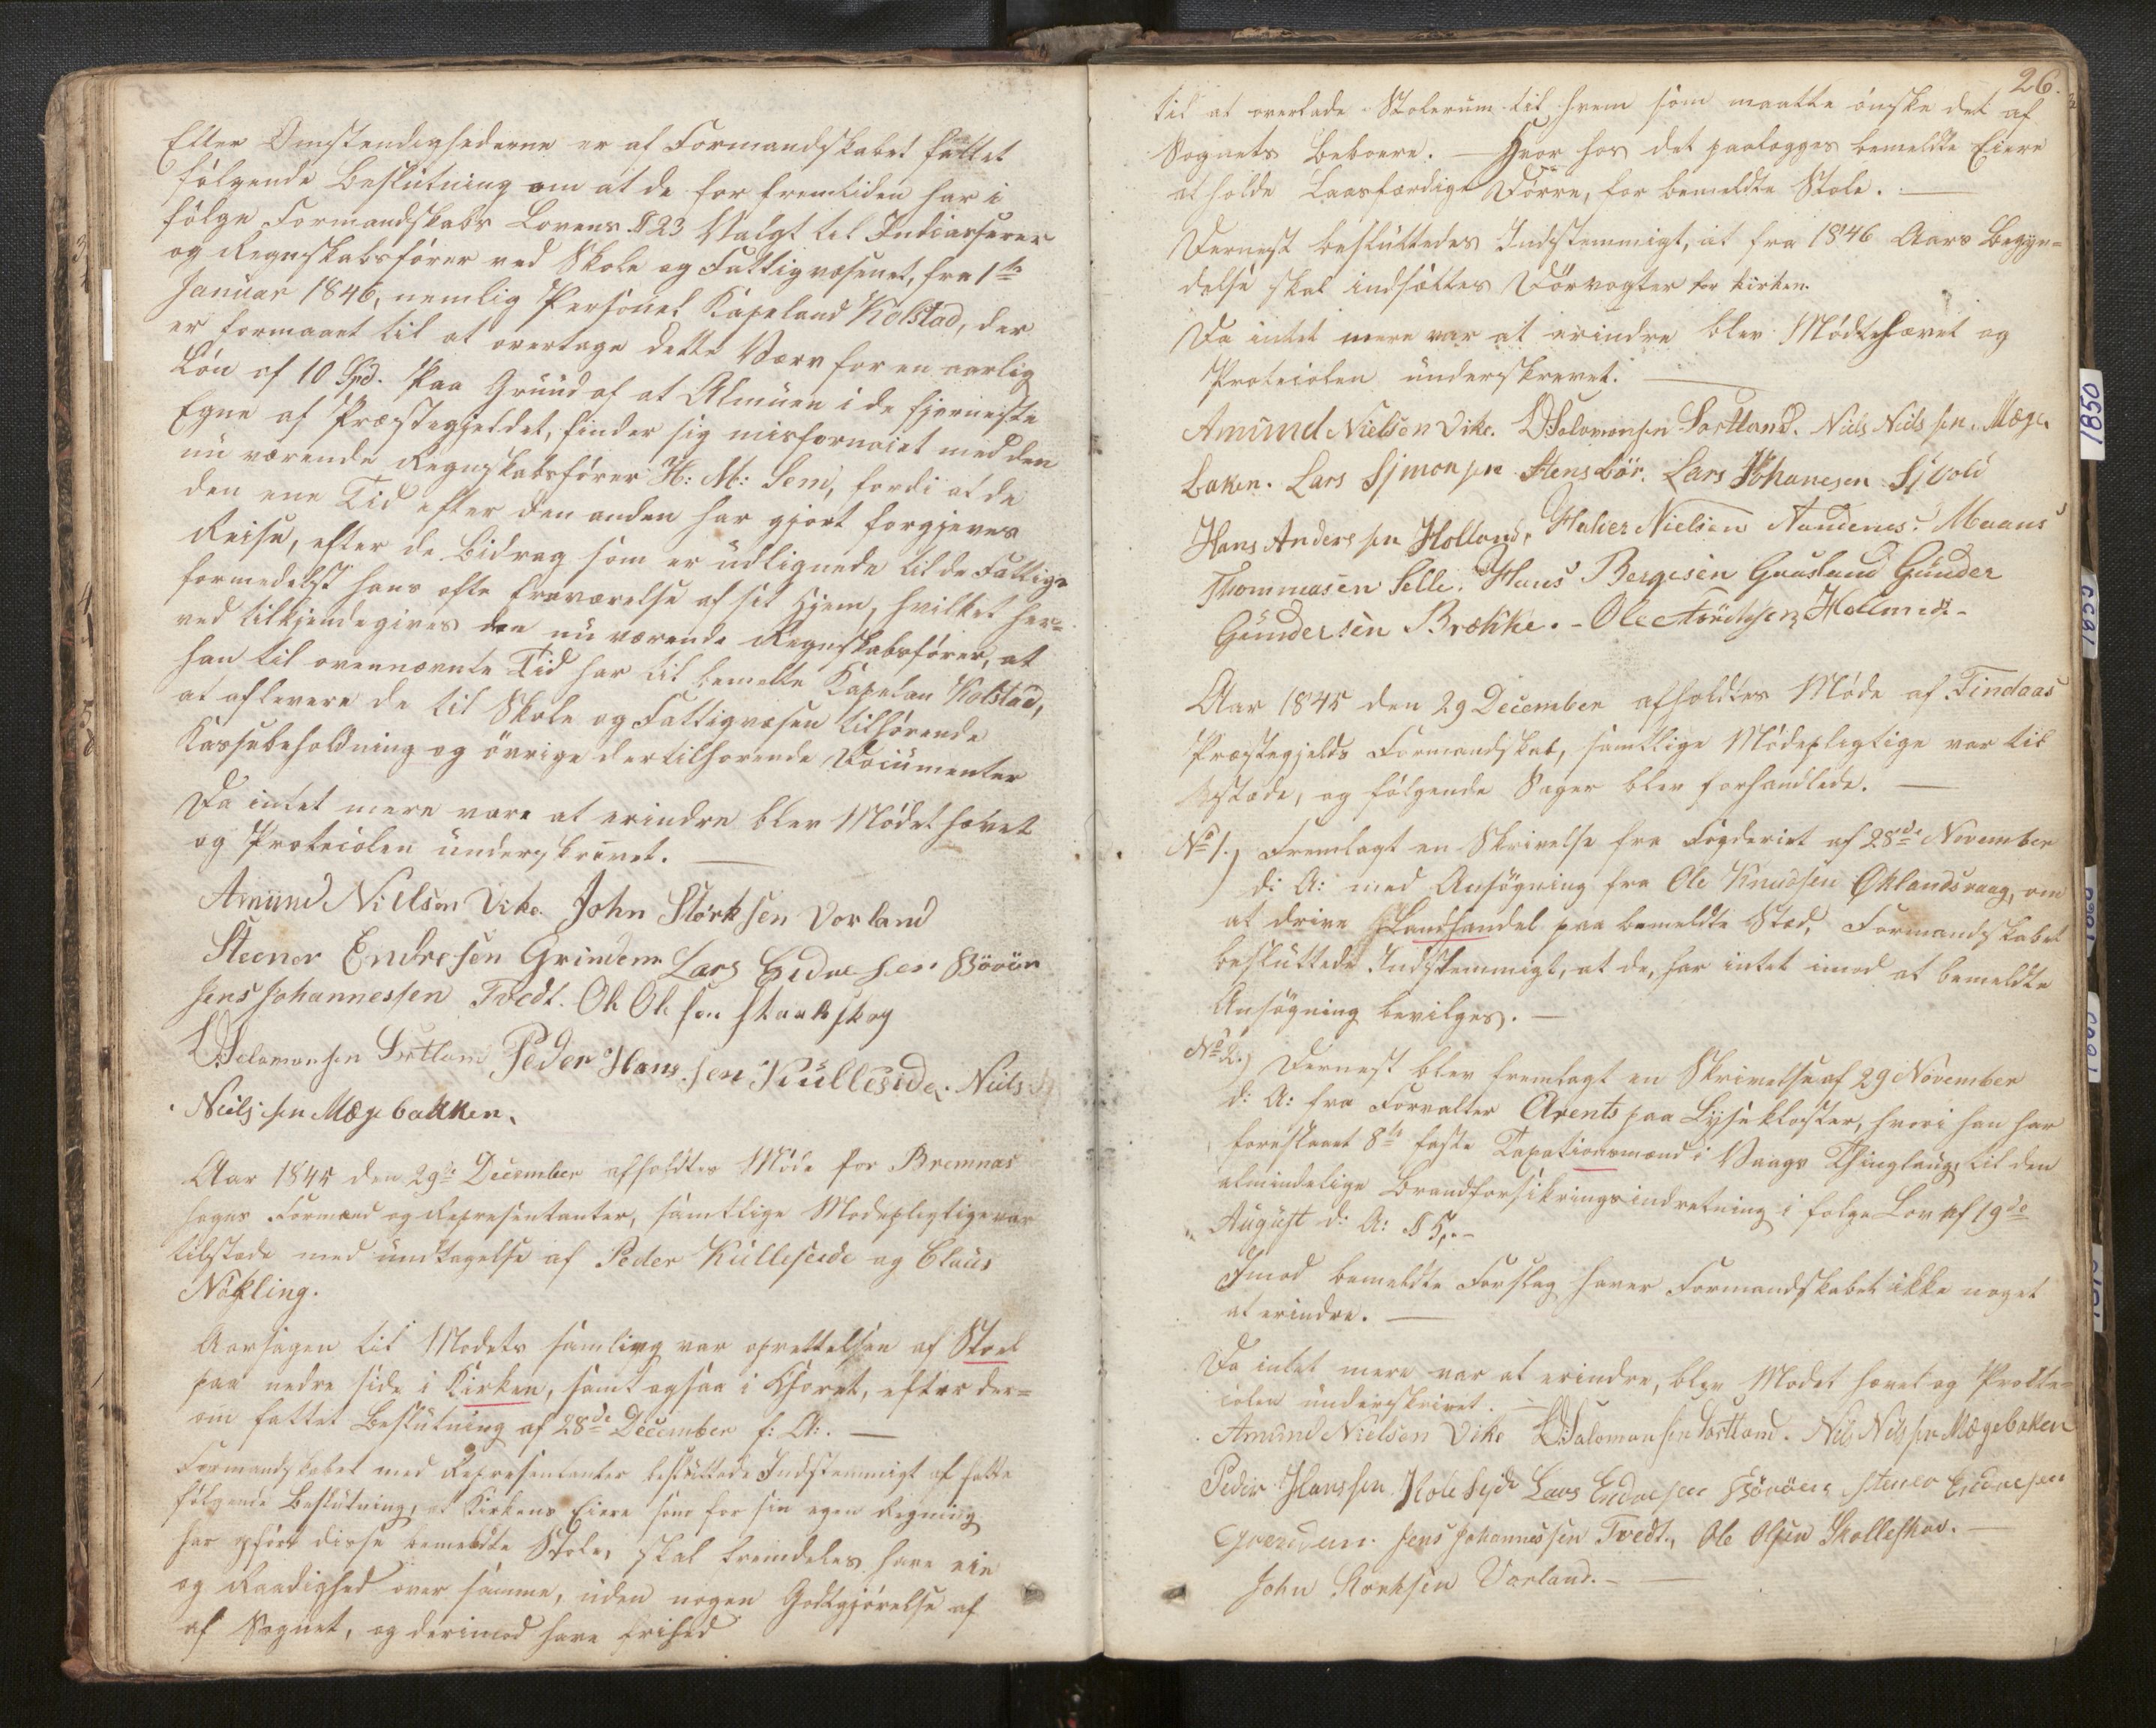 Efter Omstendighederne er af Formandskabet fattet
følgende Beslutning om at de for fremtiden har i
følge Formandskabs Lovens § 23 Valgt til Indcasserer
og Regnskabsfører ved Skole og Fattigvæsenet, fra 1ste
Januar 1846, nemlig Personel Kapeland Kolstad, der
er formaaet til at overtage dette Værv for en aarlig
Løn af 10 Spd. Paa Grund af at Almuen i de fjerneste
Egne af Præstegjeldet, finder sig misfornøiet med den
nu værende Regnskabsfører H: M: Sem, fordi at de
den ene Tid efter den anden har gjort forgjeves
Reise, efter de Bidrag som er udlignede til de Fattige
formedelst hans ofte fraværelse af sit Hjem, hvilket her-
ved tilkjendegives den nu værende Regnskabsfører, at
han til ovennævnte Tid har til bemelte Kapelan Kolstad,
at aflevere de til Skole og Fattigvæsen tilhørende
Kassebeholdning og øvrige dertilhørende Documenter
Da intet mere vare at erindre blev Mødet hævet
og Protecolen underskrevet.
Amund Nielsen Vike. John Størksen Vorland
Steenor Endresen Grindem Lars Endresen Børøen
Jens Johannessen Tvedt. Ole Olsen
Salomonsen Sortland Peder Hanssen Kulleside. Niels
Nielssen Mægebakken.
Aar 1845 den 29de December afholdtes Møde for Bremnæs
Sogns Formænd og Representanter, samtlige Modepligtige var
tilstæde med undtagelse af Peder Kulleseide og Claus
Nøkling.
Aarsagen til Modets samling var oprettelsen af Stoel
paa nedre side i Kirken, samt ogsaa i Choret, efter der-
om fattet Beslutning af 28de December f: A:.
Formandskabet med Representanter besluttede Indstemmigt at fatte
følgende Beslutning, at Kirkens Eiere som for sin egen Regning
har opført disse bemeldte Stole, skal fremdeles have eie
og Raadighed over samme, uden nogen Godtgjørelse af
af Sognet, og derimod have frihed
26.
til at overlade Stolerum til hvem som maatte ønske det af
Sognets Beboere. — Hvor hos det paalægges bemeldte Eiere
at holde Laasfærdige Dörre, for bemeldte Stole. —
Dernest besluttedes Indstemmigt, at fra 1846 Aars Begyn-
delse skal indsættes Dørvogter for kirken.
Da intet mere var at erindre blev Mødtehævet og
Protecolen underskrevet.
Amund Nielsen Vike. Salomonsen Sortland. Niels Nielssen. Mæge-
baken. Lars Sjmonsen Stensbør. Lars Johanesen Sjvold
Hans Anderssen Holland, Halver Nielsen Aandenes. Maans
Thommasen Selle. Hans Bergesen Gaasland Günder
Gündersen Brække. - Ole
Aar 1845 den 29 December afholdtes Møde af Findaas
Præstegjelds Formandskab, samtlige Mødepligtige var til
stæde, og følgende Sager blev forhandlede. —
No 1.) Fremlagt en Skrivelse fra Fogderiet af 28de November
d: A: med Ansøgning fra Ole Knudsen Øklandsvaag, om
at drive Landhandel paa bemeldte Sted, Formandskabet
besluttede Indstemmigt, at de, har intet imod at bemeldte
Ansøgning bevilges. —
No 2.) Dernest blev fremlagt en Skrivelse af 29 November
d: A: fra Forvalter Arents paa Lysekloster, hvori han har
foreslaaet 8te faste Taxationsmænd i Vaags Thinglaug, til den
almindelige Brandforsikringsindretning i følge Lov af 19de
August d: A: § 5,.-
Imod bemeldte Forslag haver Formandskabet ikke noget
at erindre. —
Da intet mere var at erindre, blev Modet hævet og Protte-
colen underskrivet. —
Amund Nielsen Vike Salomonsen Sortland. Nils Nilssen Mægebaken
Peder Hanssen Kolesejde Lars Endresen Børøen Stener Endresen
Grendem. Jens Johannessen Tvedt., Ole Olsen
John Størksen Vorland. —
1850